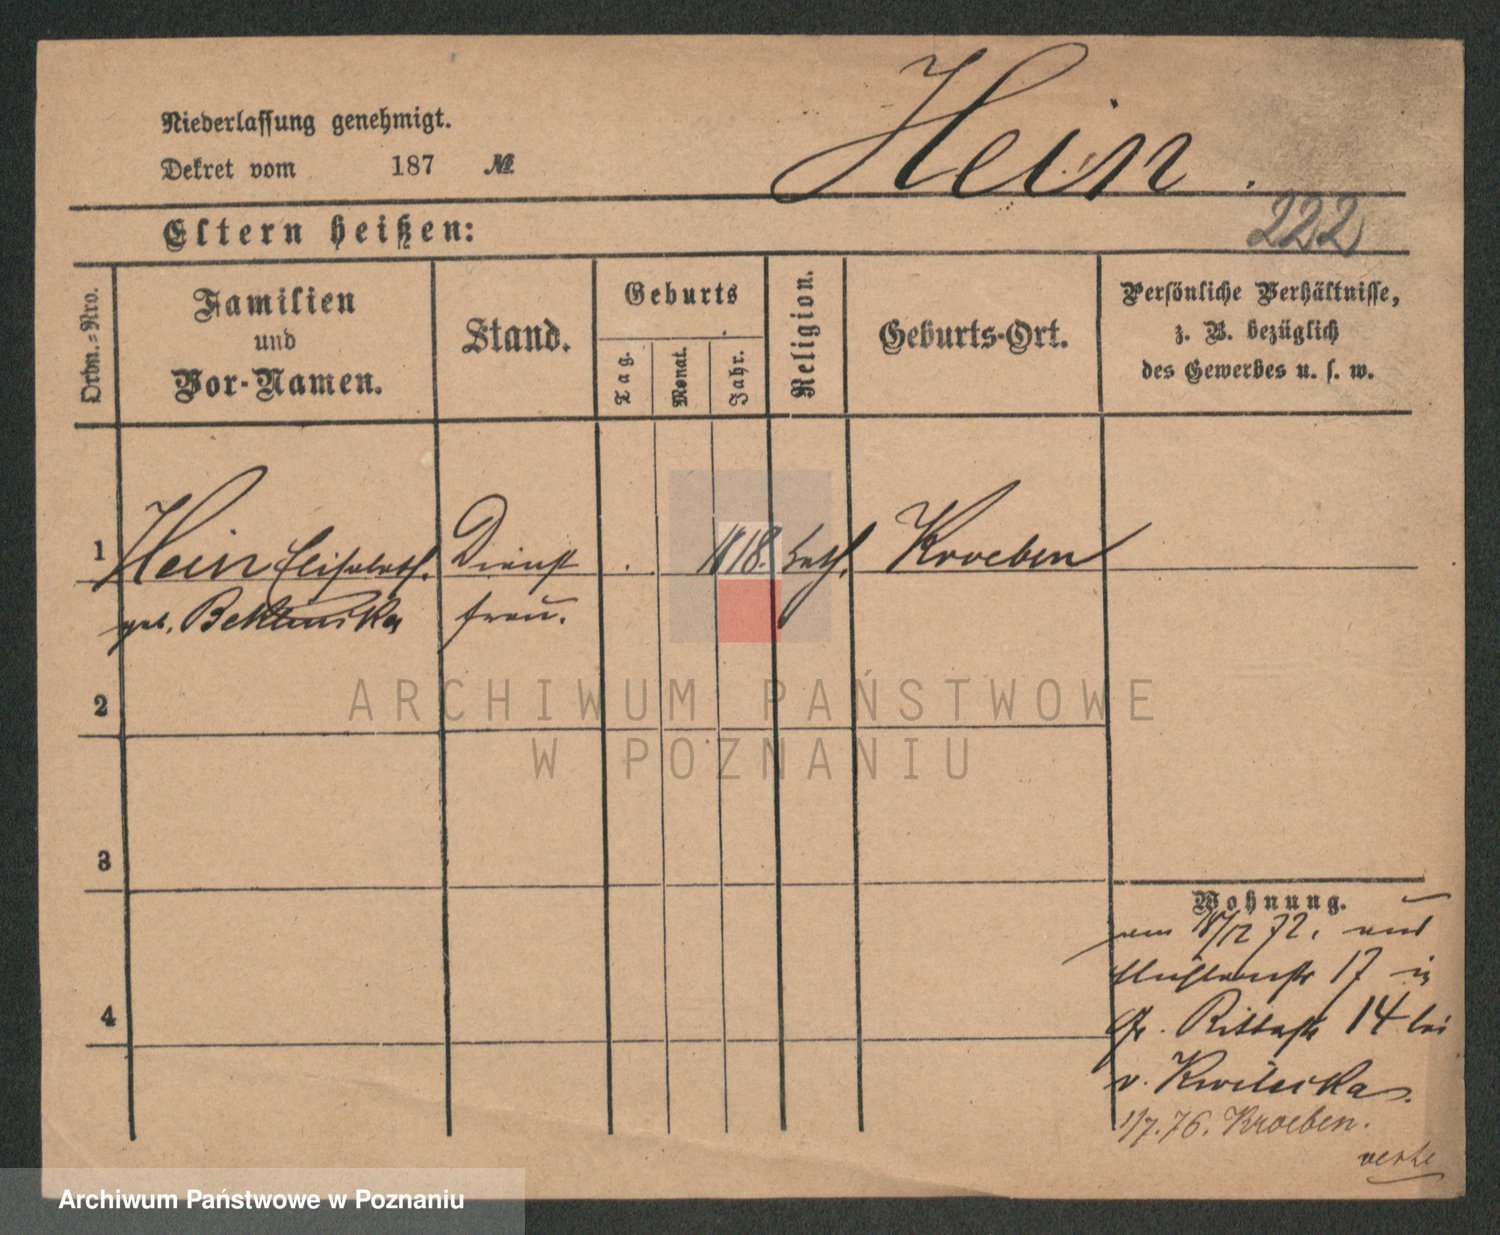 Niederlassung genehmigt.
Dekret vom 187 №
Hein.
222
Eltern heißen:
Ordn.-Nro.
Familien
und
Vor-Namen.
Stand.
Geburts
Tag.
Monat.
Jahr.
Religion.
Geburts-Ort.
Persönliche Verhältnisse,
z. B. bezüglich
des Gewerbes u. s. w.
1 Hein Elisabeth. Dienst 1818. kath. Kroeben
geb. frau.
2
3
4
Wohnung.
17 in
Gr. Ritterstr 14 bei
v. Kwilecka.
1/7.76. Kroeben.
ARCHIWUM PAŃSTWOWE
W POZNANIU
Archiwum Państwowe w Poznaniu